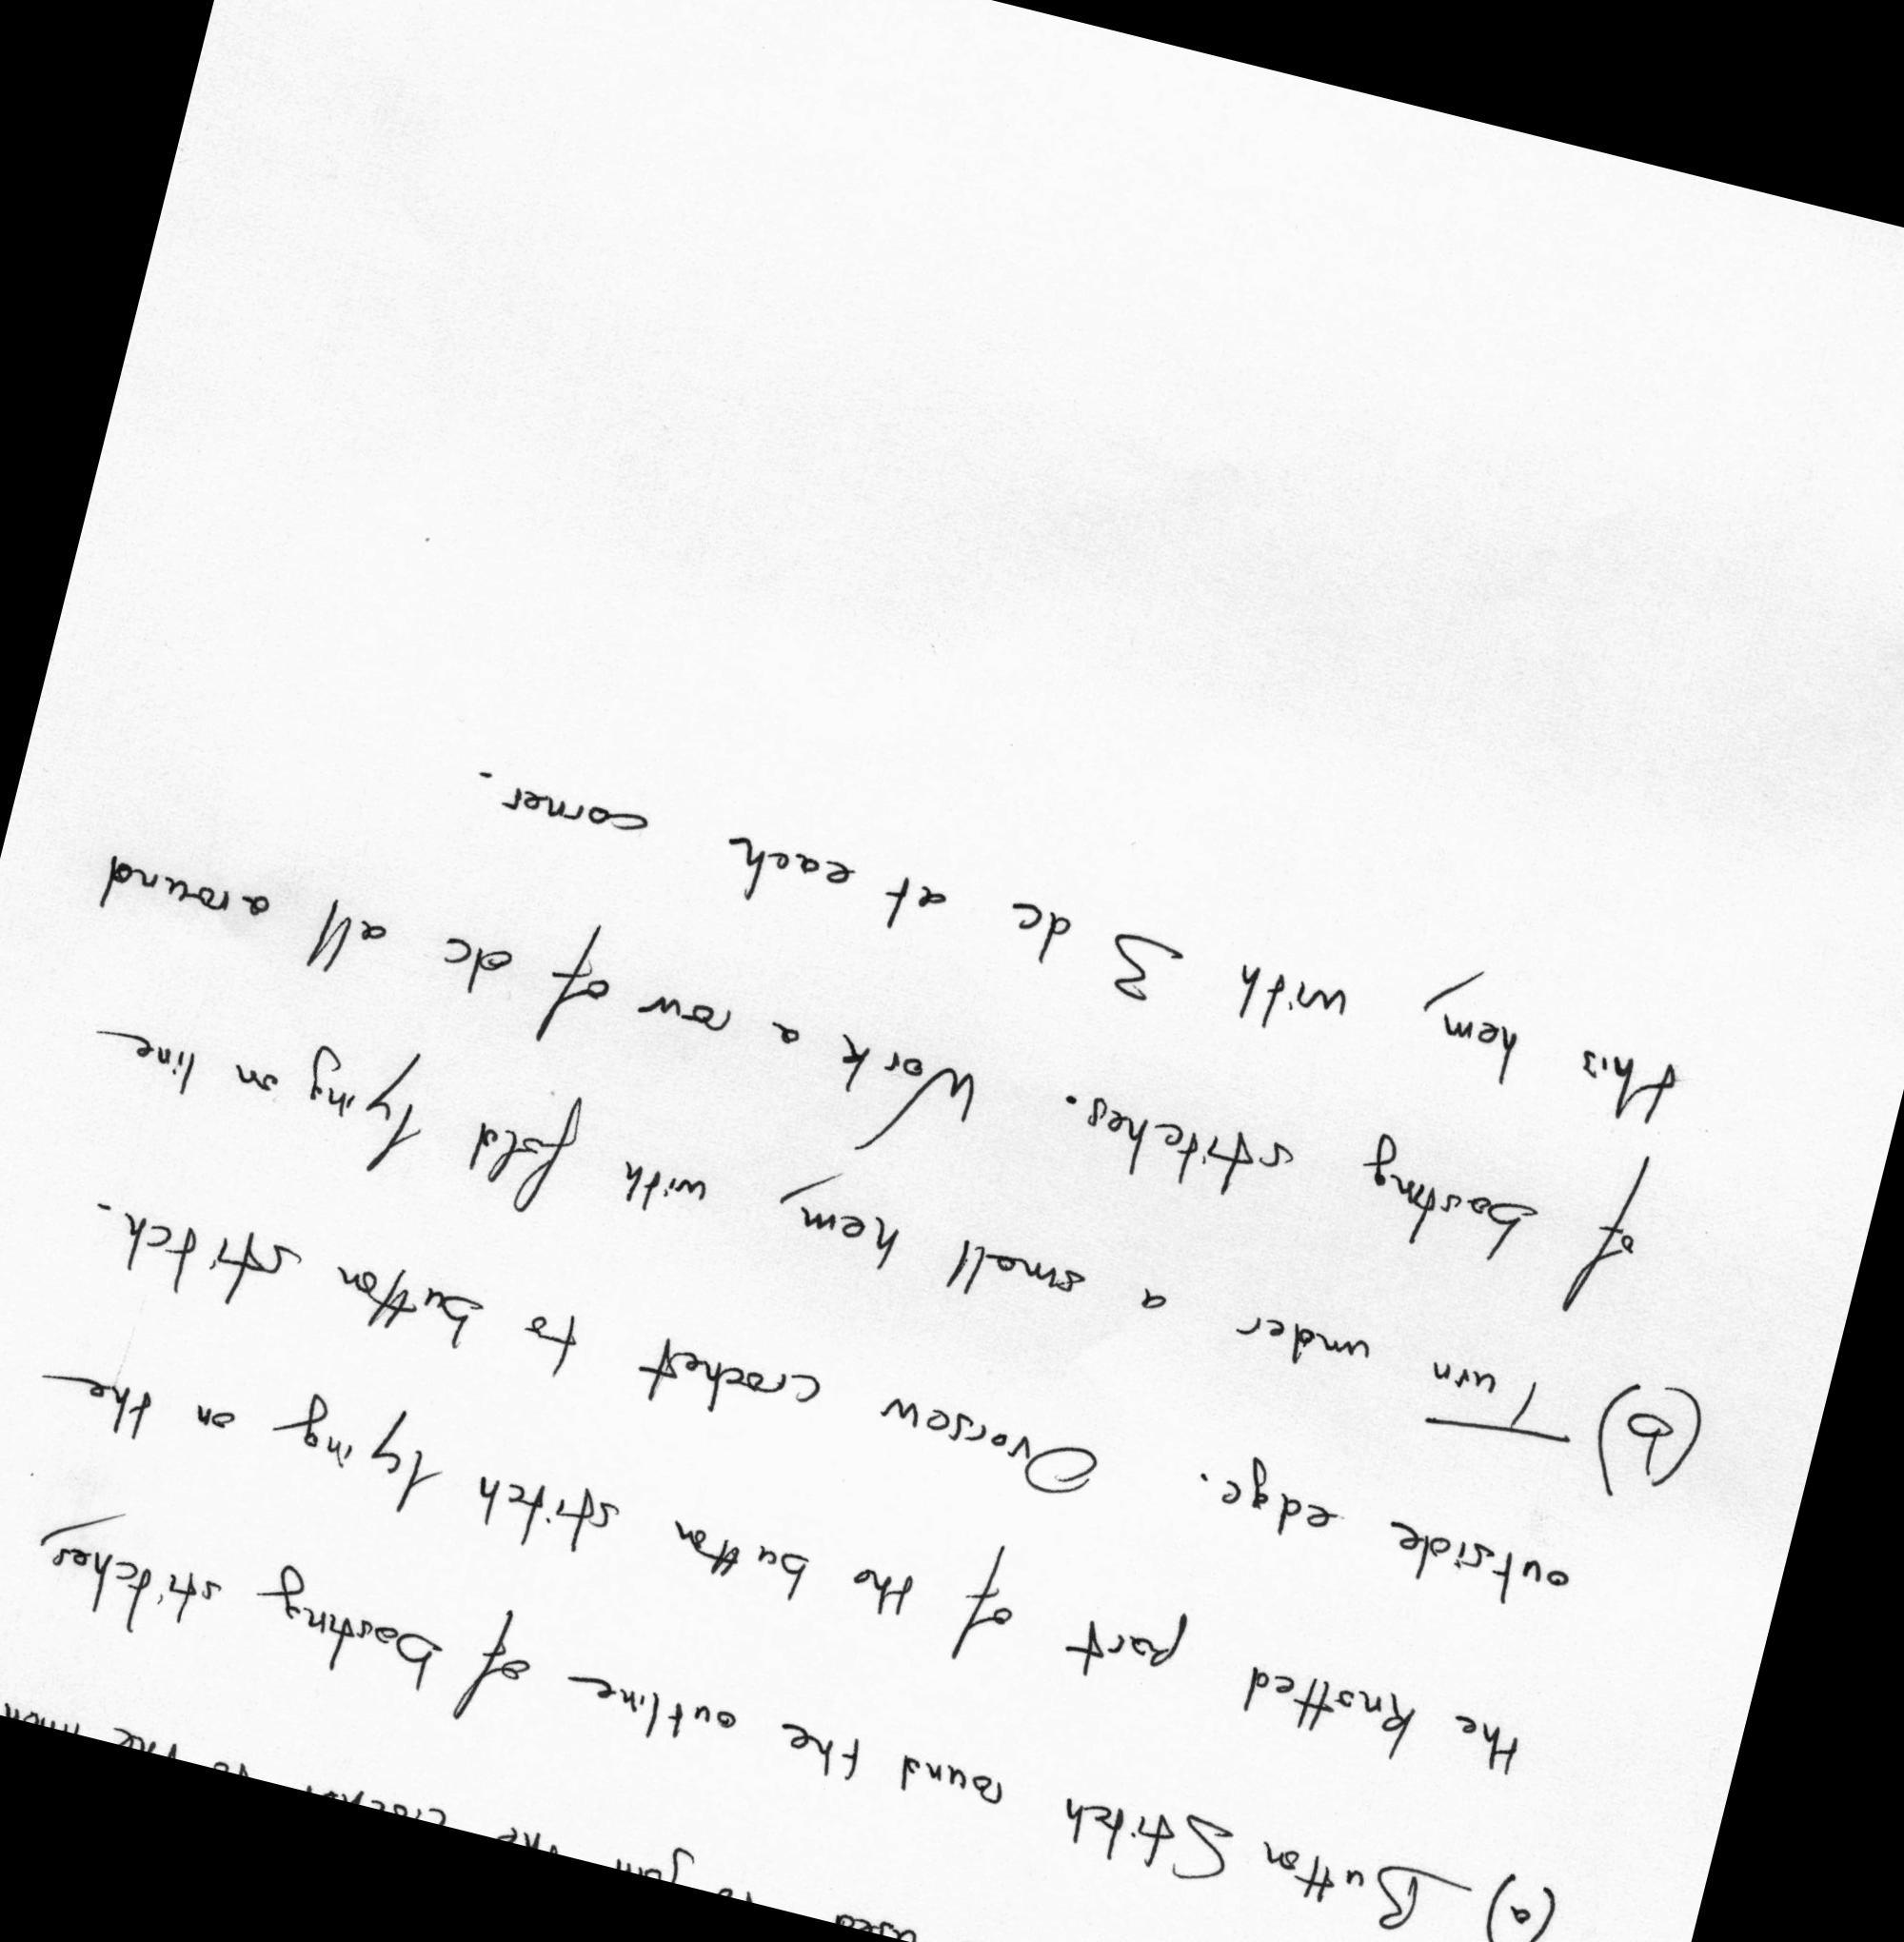 used to join the crochet to the
(a) Button Stitch round the outline of basting stitches,
the knotted part of the button stitch lying on the
outside edge. Oversew crochet to button stitch.
(b) Turn under a small hem, with fold lying on line
of basting stitches. Work a row of dc all around
this hem, with 3 dc at each corner.